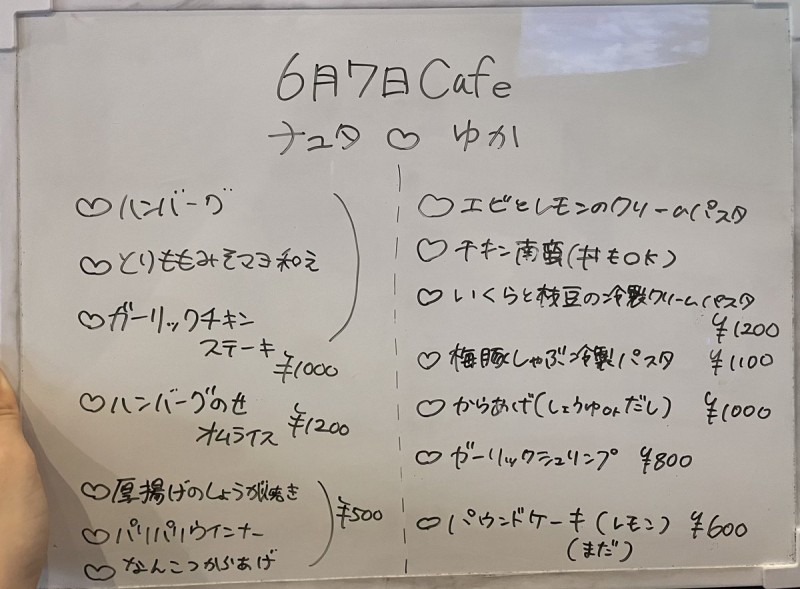 6月7日Cafe
ナュタ ♡ ゆか
♡ ハンバーグ
♡ とりももみそマヨ和え
♡ ガーリックチキン
ステーキ
¥1000
♡ ハンバーグのせ
オムライス ¥1200
♡ 厚揚げのしょうが焼き
♡ パリパリウインナー
♡ なんこつからあげ
¥500
♡ エビとレモンのクリームパスタ
♡ チキン南蛮(丼もOK)
♡ いくらと枝豆の冷製クリームパスタ
¥1200
♡ 梅豚しゃぶ冷製パスタ ¥1100
♡ からあげ(しょうゆorだし) ¥1000
♡ ガーリックシュリンプ ¥800
♡ パウンドケーキ(レモン) ¥600
(まだ)